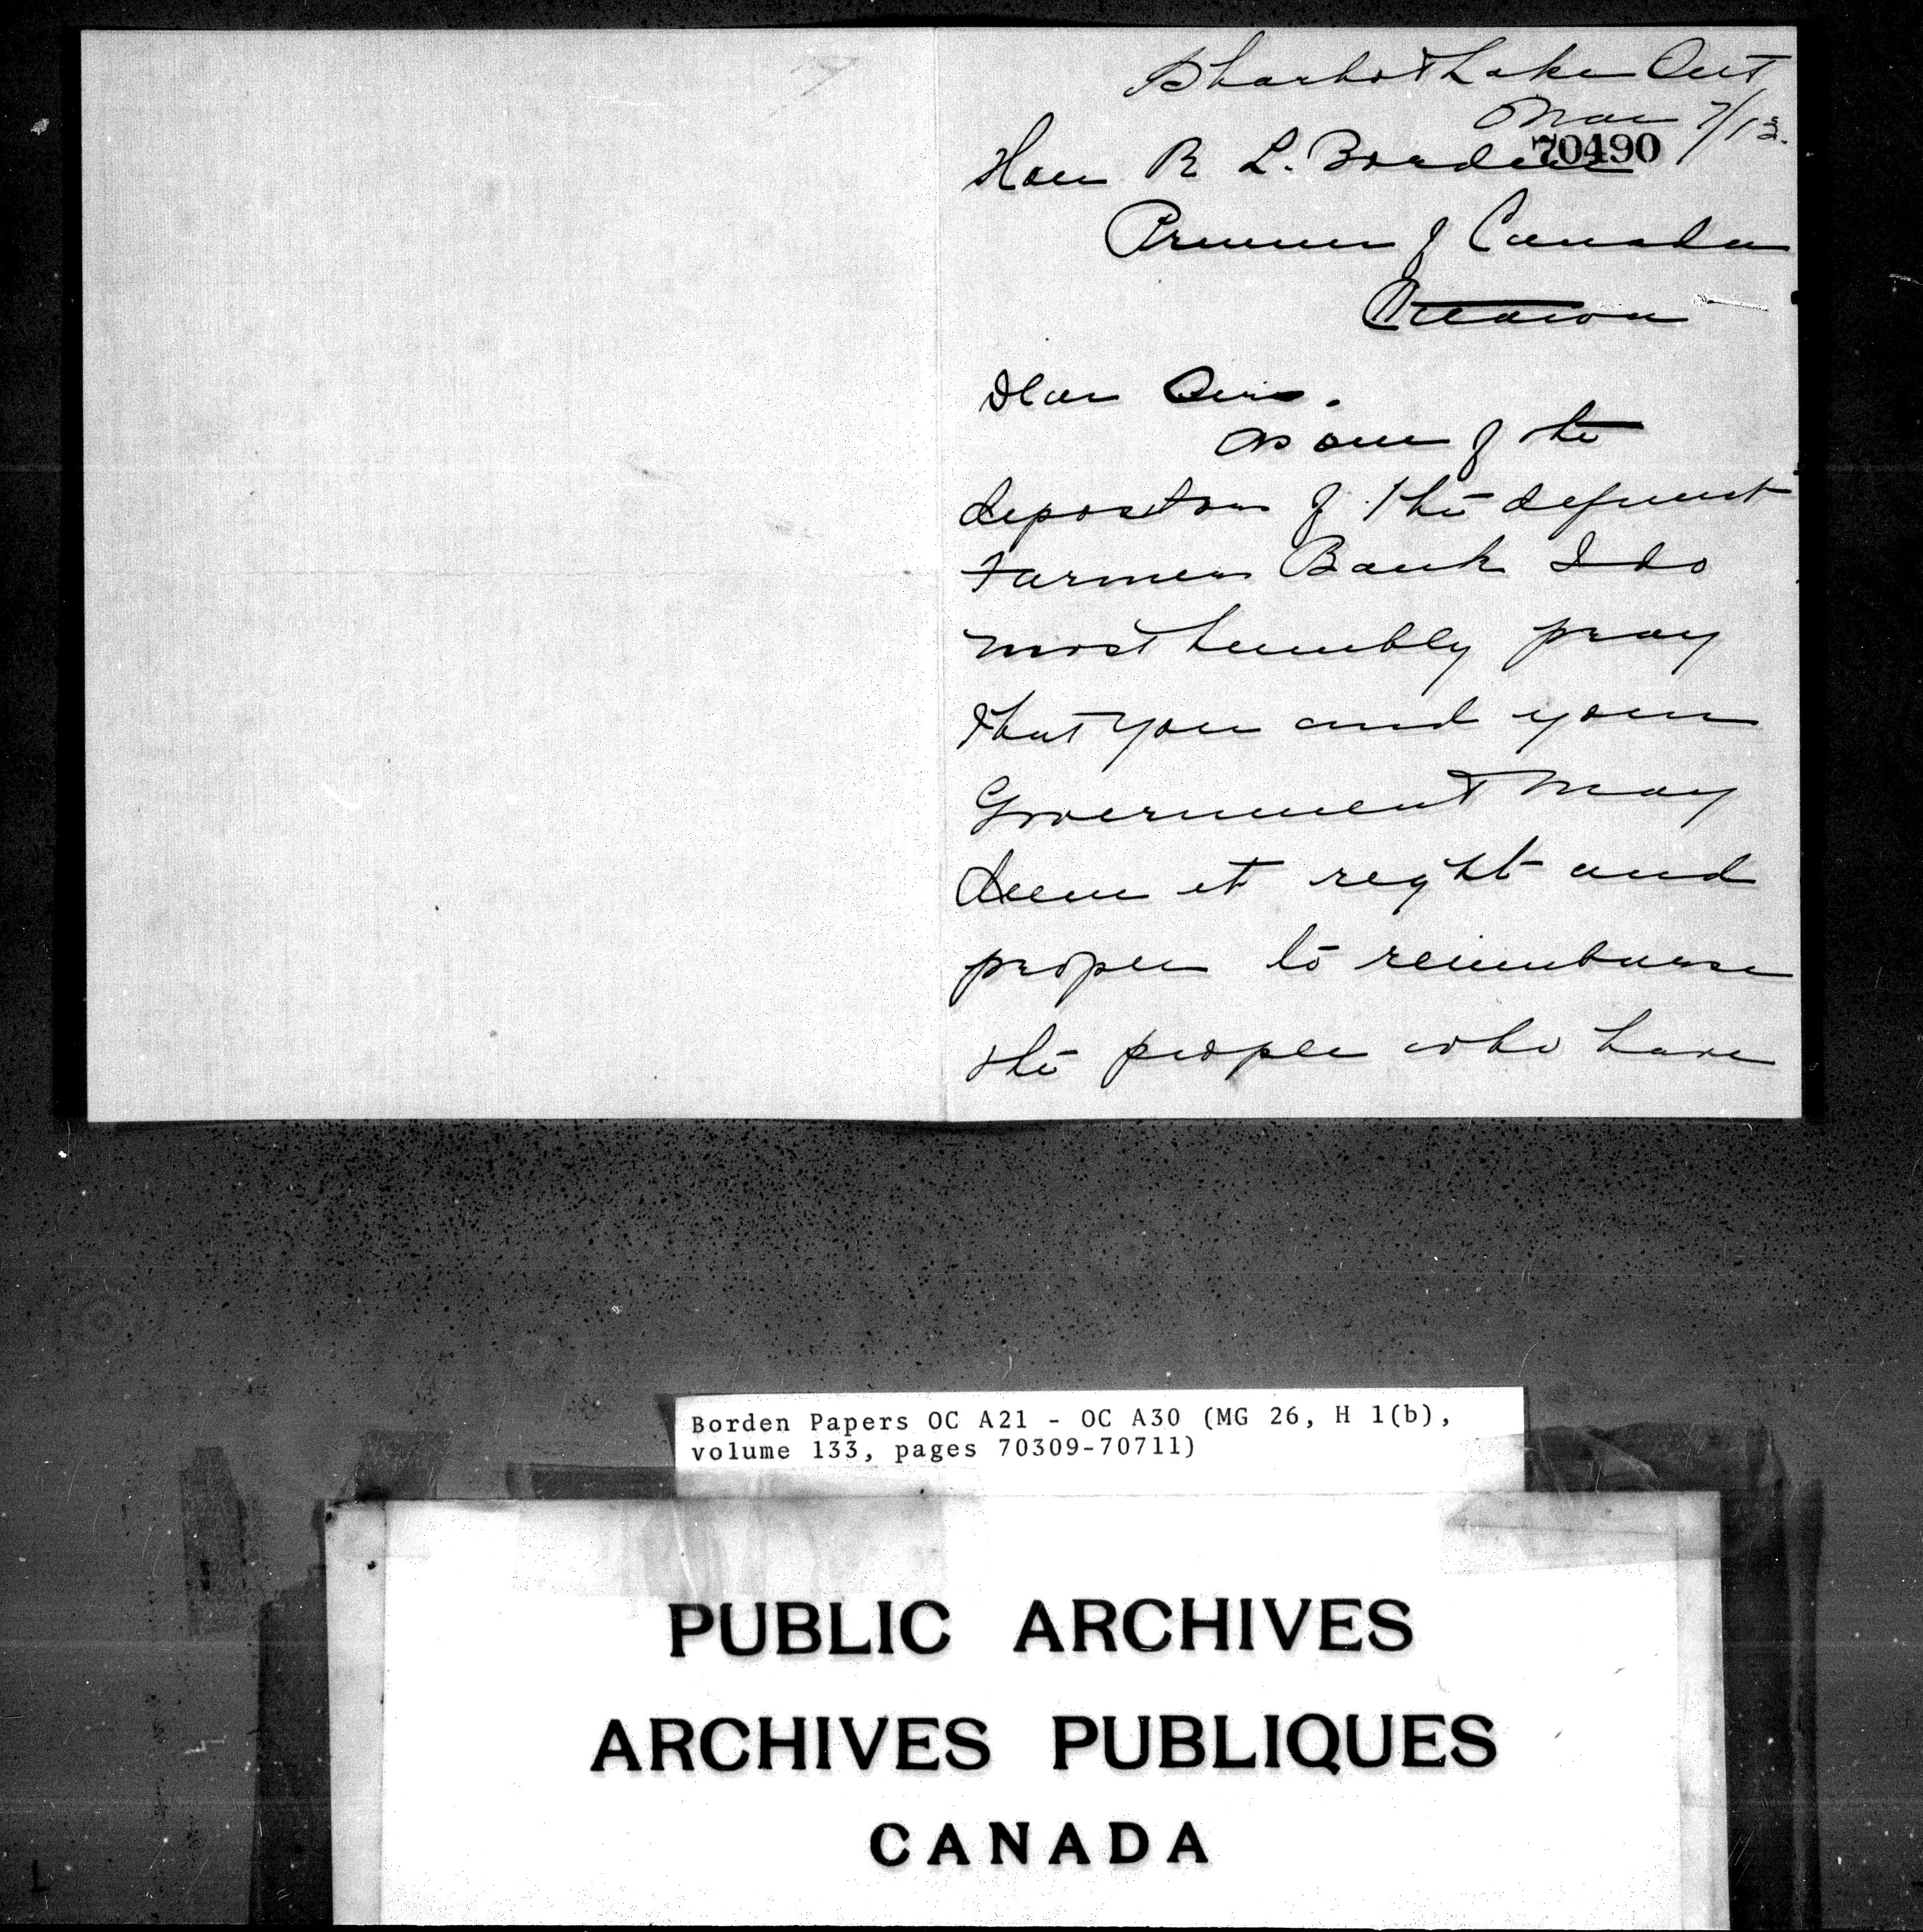 Sharbot Lake Ont
Mar 7/13.
70490
Hon R L. Borden
Premier of Canada
Ottawa
Dear Sir.
As one of the
depositors of the defunct
Farmers Bank I do
most humbly pray
that you and your
Government may
deem it right and
proper to reimburse
the people who have
Borden Papers OC A21 - OC A30 (MG 26, H 1(b),
volume 133, pages 70309-70711)
PUBLIC ARCHIVES
ARCHIVES PUBLIQUES
CANADA